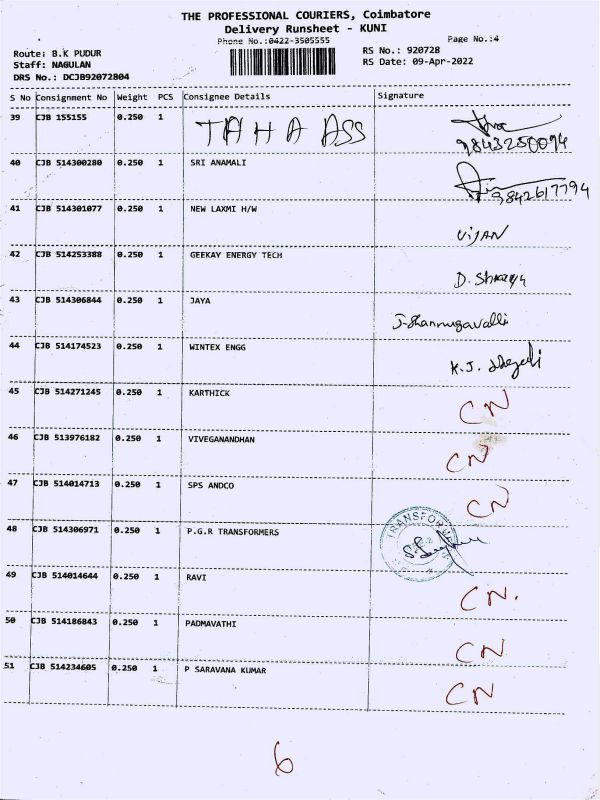 THE PROFESSIONAL COURIERS, Coimbatore
Delivery Runsheet - KUNI
Phone No.:0422-3505555
Page No.:4
Route: B.K PUDUR
RS No.: 920728
Staff: NAGULAN
RS Date: 09-Apr-2022
DRS No.: DCJB92072804
S No Consignment No Weight PCS Consignee Details Signature
39 CJB 155155 0.250 1 TAHA ASS
9843250094
40 CJB 514300280 0.250 1 SRI ANAMALI
9842617794
41 CJB 514301077 0.250 1 NEW LAXMI H/W
VIJAN
42 CJB 514253388 0.250 1 GEEKAY ENERGY TECH
D.
43 CJB 514306844 0.250 1 JAYA
J-Shannugavalli
44 CJB 514174523 0.250 1 WINTEX ENGG
K.J.
45 CJB 514271245 0.250 1 KARTHICK
CN
46 CJB 513976182 0.250 1 VIVEGANANDHAN
CN
47 CJB 514014713 0.250 1 SPS ANDCO
CN
48 CJB 514306971 0.250 1 P.G.R TRANSFORMERS
49 CJB 514014644 0.250 1 RAVI
CN.
50 CJB 514186843 0.250 1 PADMAVATHI
CN
51 CJB 514234605 0.250 1 P SARAVANA KUMAR
CN
6